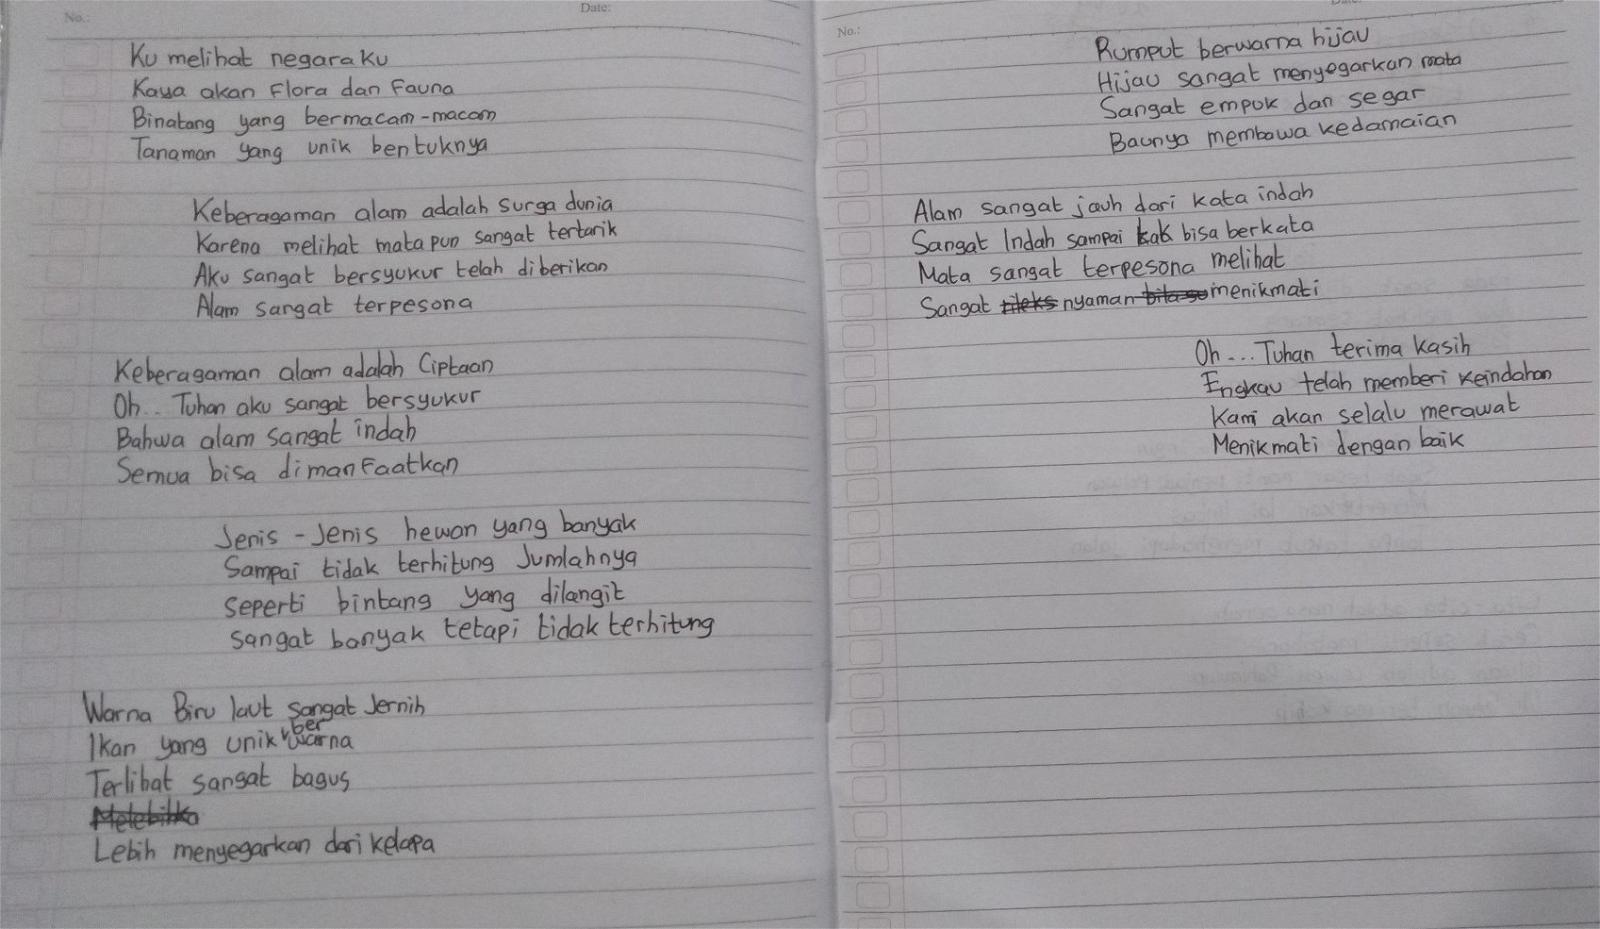 No.:
Date:
Ku melihat negaraku
Kaya akan Flora dan Fauna
Binatang yang bermacam-macam
Tanaman yang unik bentuknya
Keberagaman alam adalah surga dunia
Karena melihat mata pun sangat tertarik
Aku sangat bersyukur telah diberikan
Alam sangat terpesona
Keberagaman alam adalah Ciptaan
Oh.. Tuhan aku sangat bersyukur
Bahwa alam sangat indah
Semua bisa dimanfaatkan
Jenis - Jenis hewan yang banyak
Sampai tidak terhitung Jumlahnya
seperti bintang yang dilangit
sangat banyak tetapi tidak terhitung
Warna Biru laut sangat Jernih
Ikan yang unik berwarna
Terlihat sangat bagus
Lebih menyegarkan dari kelapa
No.:
Rumput berwarna hijau
Hijau sangat menyegarkan mata
Sangat empuk dan segar
Baunya membawa kedamaian
Alam sangat jauh dari kata indah
Sangat Indah sampai kak bisa berkata
Mata sangat terpesona melihat
Sangat nyaman menikmati
Oh ... Tuhan terima kasih
Engkau telah memberi keindahan
Kami akan selalu merawat
Menikmati dengan baik